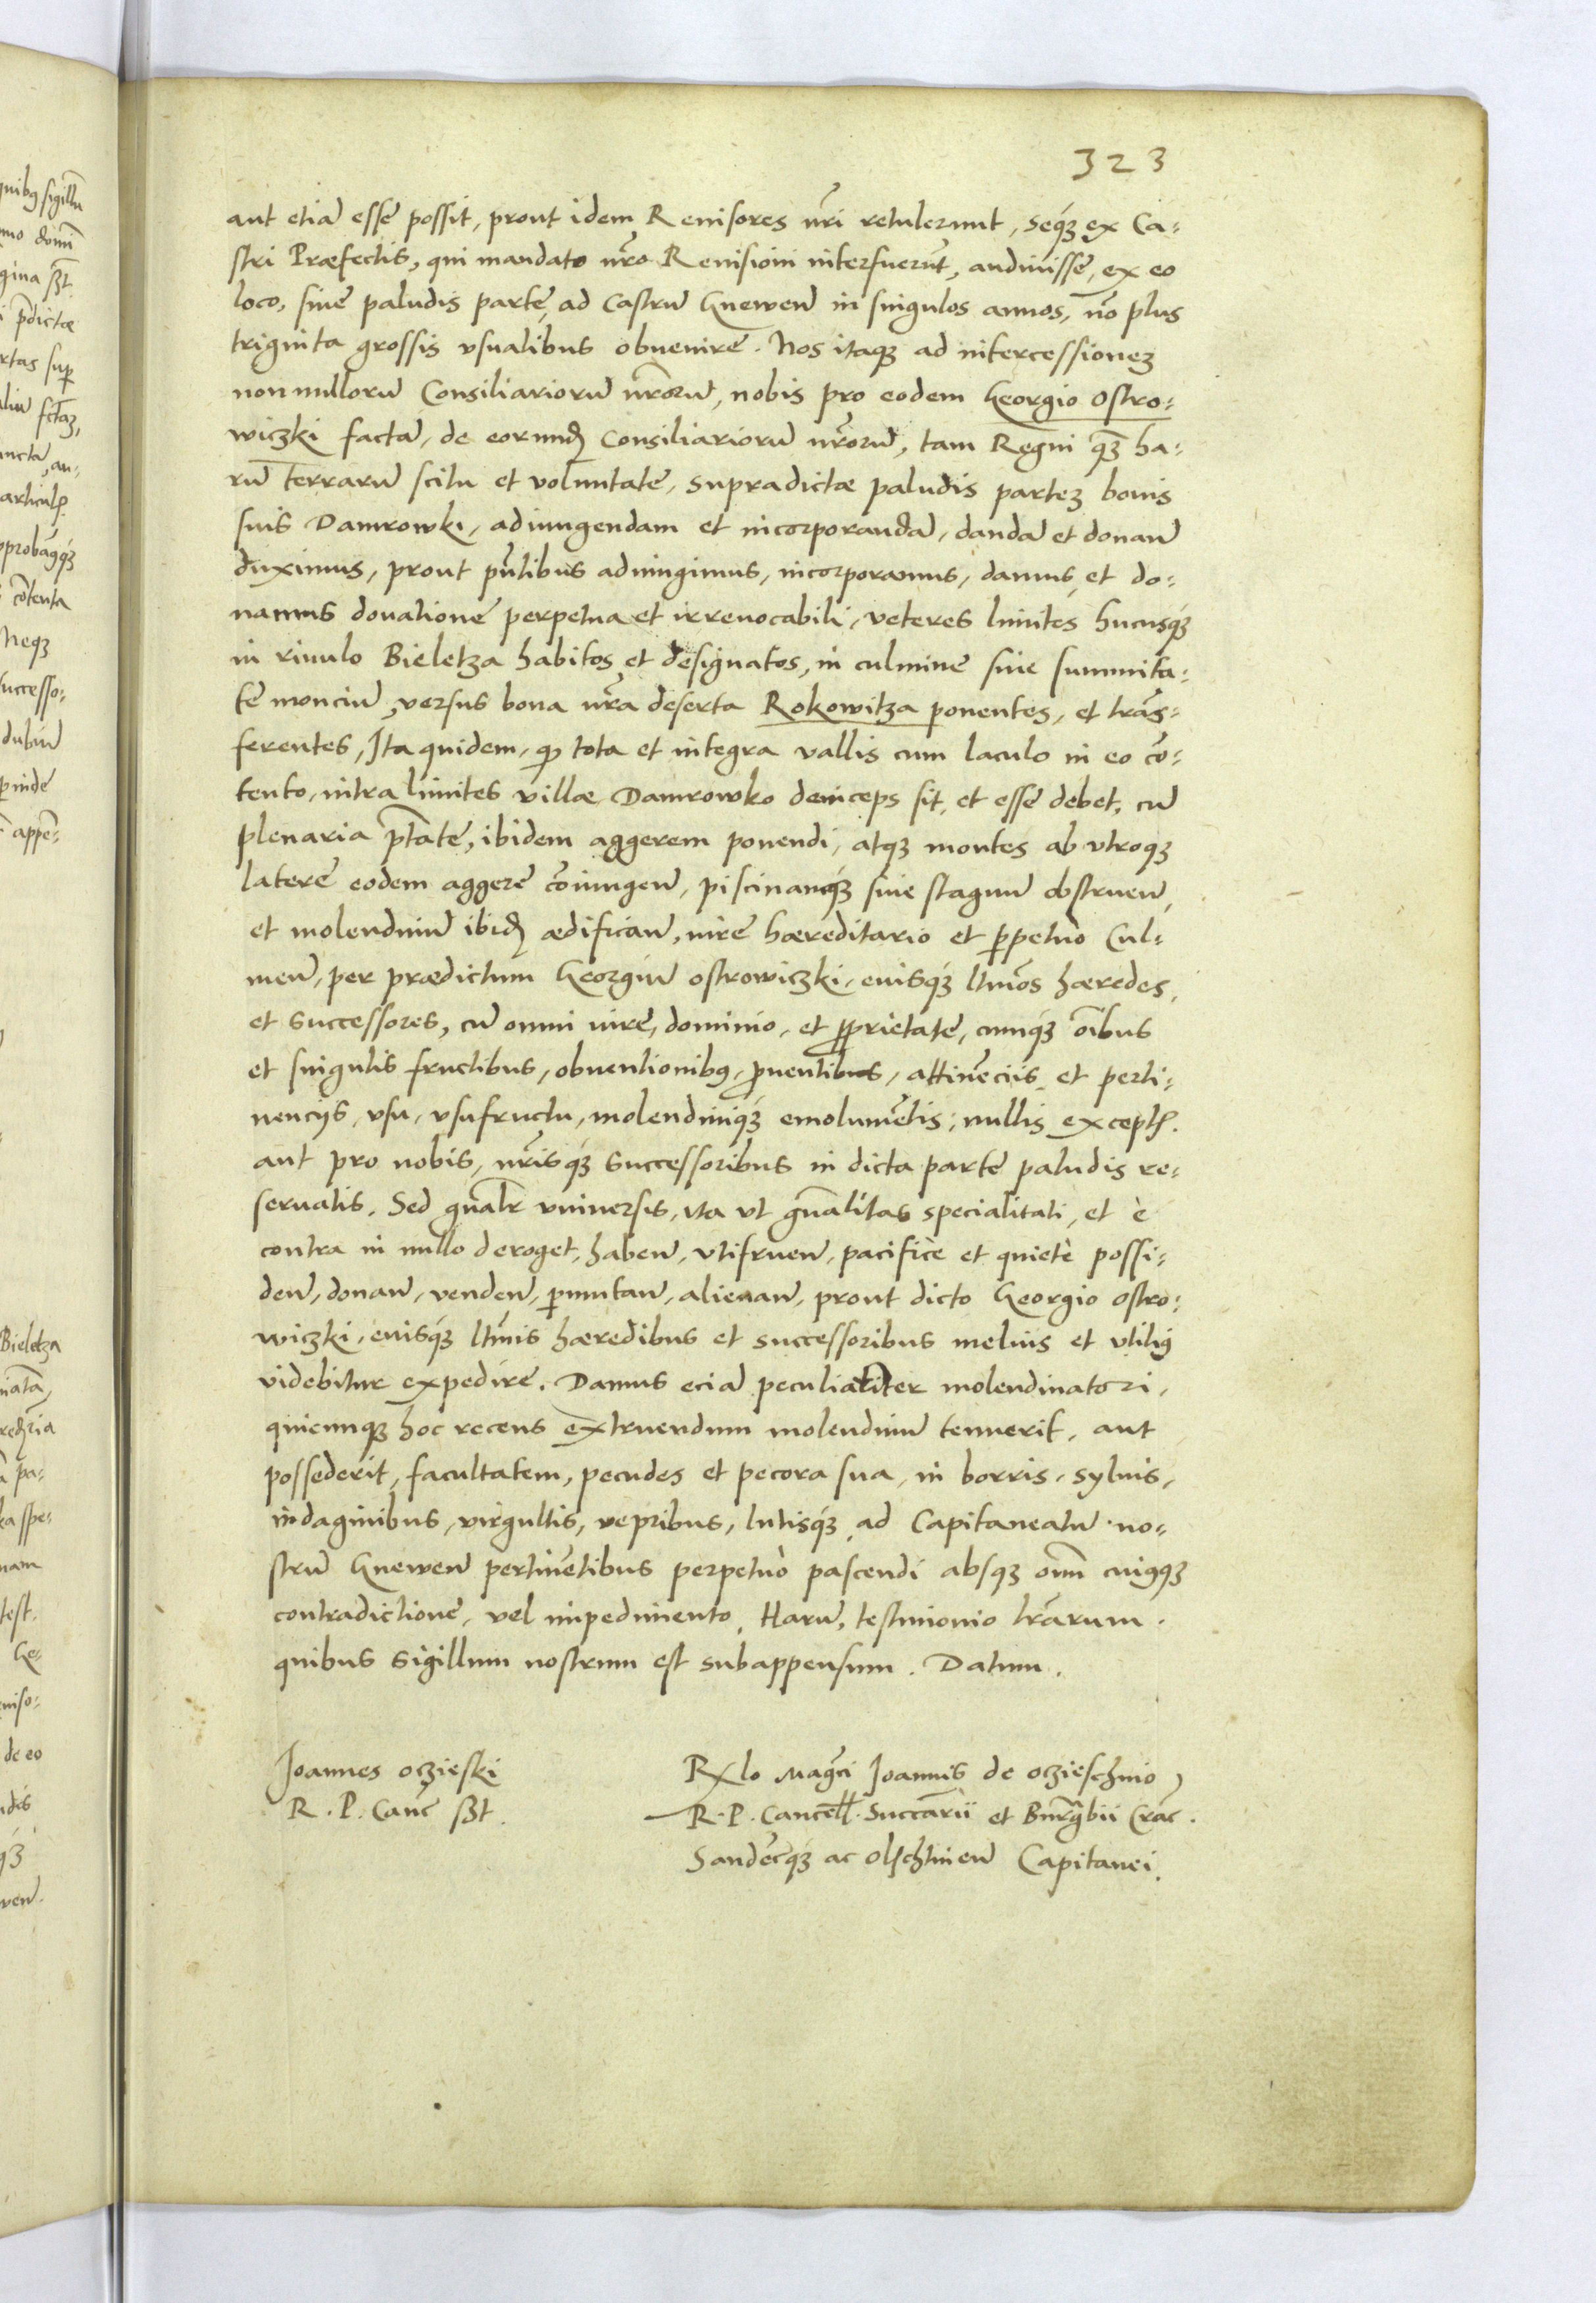 323
aut etiã esse possit, prout idem Reuisores nr̃i retulerunt, seq́ꝫ ex Ca-
stri Præfectis, qui mandato nr̃o Reuisioni interfuerũt, audiuisse, ex eo
loco, siue paludis parte, ad Castrũ Gnewen̄ in singulos annos, nõ plus
triginta grossis vsualibus obuenire. Nos itaqꝫ ad intercessioneꝫ
nonnullorũ Consiliariorũ nr̃orũ, nobis pro eodem Georgio Ostro-
wiczki factã, de eorundꝫ Consiliariorũ nr̃orũ, tam Regni qꝫ̃ ha-
rũ terrarũ scitu et voluntate, supradictæ paludis parteꝫ bonis
suis Damrowki, adiungendam et incorporandã, dandã et donan̄
duximus, prout pñtibus adiungimus, incorporamus, damus et do-
namus donatione perpetua et irreuocabili, veteres limites hucusq́ꝫ
in riuulo Bieletza habitos et designatos, in culmine siue summita-
te monciũ, versus bona nr̃a deserta Rokowitza ponentes, et trãs-
ferentes, Ita quidem, ꝙ tota et integra vallis cum laculo in eo cõ-
tento, intra limites villæ Damrowko deinceps sit, et esse debet, cũ
plenaria ptãte, ibidem aggerem ponendi, atqꝫ montes ab vtroqꝫ
latere eodem aggere cõiungen̄, piscinamq́ꝫ siue stagnũ obstruen̄,
et molendinũ ibidꝫ ædifican̄, iure hæreditario et ꝑpetuò Cul-
men̄, per prædictum Georgiũ Ostrowiczki, euisq́ꝫ ltimõs hæredes,
et successores, cũ omni iure, dominio, et ꝓprietate, cumq́ꝫ oĩbus
et singulis fructibus, obuentionibꝰ, ꝓuentibus, attinẽciis et perti-
nenciis, vsu, vsufructu, molendiniq́ꝫ emolumẽtis, nullis exceptꝭ.
aut pro nobis, nr̃isq́ꝫ successoribus in dicta parte paludis re-
seruatis. Sed gñalr̃ vniuersis, ita vt gñalitas specialitati, et è
contra in nullo deroget, haben̄, vtifruen̄, pacificè et quietè possi-
den̄, donan̄, venden̄, ꝑmutan̄, alienan̄, prout dicto Georgio Ostro-
wiczki, euisq́ꝫ ltimĩs hæredibus et successoribus melius et vtiliꝰ
videbitur expedire. Damus eciã peculiariter molendinatori,
quicunqꝫ hoc recens extruendum molendinũ tenuerit, aut
possederit, facultatem, pecudes et pecora sua, in borris, syluis,
indaginibus, virgultis, vepribus, lutisq́ꝫ ad Capitaneatũ no-
strũ Gnewen̄ pertinẽtibus perpetuò pascendi absqꝫ omĩ cuiꝰqꝫ
contradictione, vel impedimento. Harũ, testimonio lr̃arum.
quibus sigillum nostrum est subappensum. Datum.
Joannes Oczieski
R. P. Canc̃ sꝫt.
Rxlo Magc̃i Joannis de Oczieschino
R. P. Cancell. Succãrii et Burgr̃bii Crac̃.
Sandecq́ꝫ ac Olschtinen̄ Capitanei.